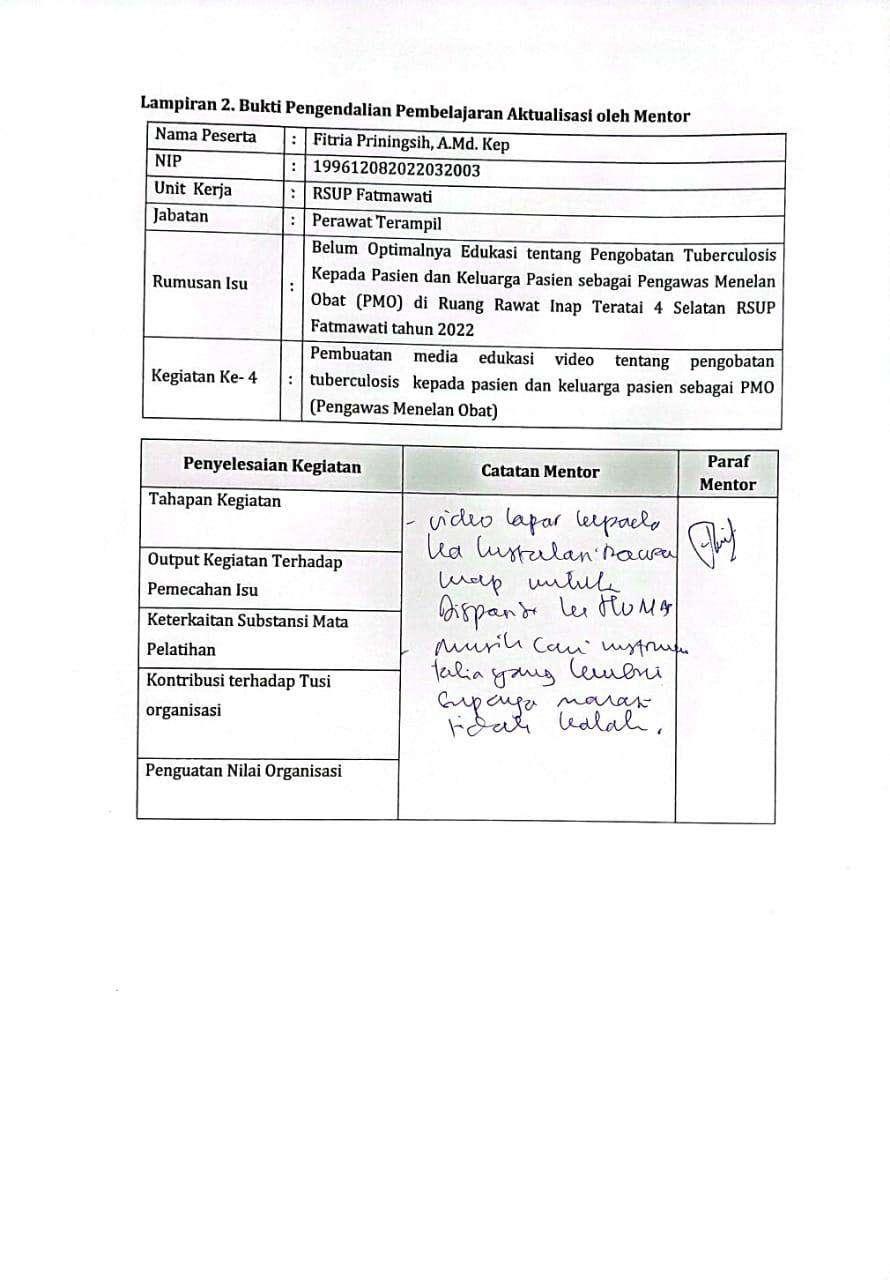 Lampiran 2. Bukti Pengendalian Pembelajaran Aktualisasi oleh Mentor
Nama Peserta : Fitria Priningsih, A.Md. Kep
NIP : 199612082022032003
Unit Kerja : RSUP Fatmawati
Jabatan : Perawat Terampil
Rumusan Isu :
Belum Optimalnya Edukasi tentang Pengobatan Tuberculosis
Kepada Pasien dan Keluarga Pasien sebagai Pengawas Menelan
Obat (PMO) di Ruang Rawat Inap Teratai 4 Selatan RSUP
Fatmawati tahun 2022
Kegiatan Ke- 4 :
Pembuatan media edukasi video tentang pengobatan
tuberculosis kepada pasien dan keluarga pasien sebagai PMO
(Pengawas Menelan Obat)
Penyelesaian Kegiatan
Catatan Mentor
Paraf
Mentor
Tahapan Kegiatan
Output Kegiatan Terhadap
Pemecahan Isu
Keterkaitan Substansi Mata
Pelatihan
Kontribusi terhadap Tusi
organisasi
Penguatan Nilai Organisasi
- video lapor kepada
Ka Instalasi Rawat
Inap untuk
ke HUMAS
- musik cari instrumen
yang
supaya
tidak